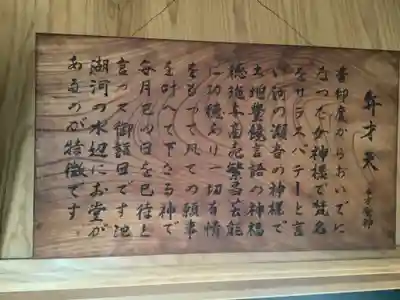 弁才天
昔印度からおいでに
なった女神様で梵名
をサラスバテーと言
い河の瀬音の神様で
土地豊饒言語の神福
徳施与商売繁昌芸能
に功徳あり一切有情
をもって凡ての願事
を叶へて下さる神で
毎月巳の日を巳待と
言って御縁日です池
湖河の水辺にお堂が
あるのが特徴です。